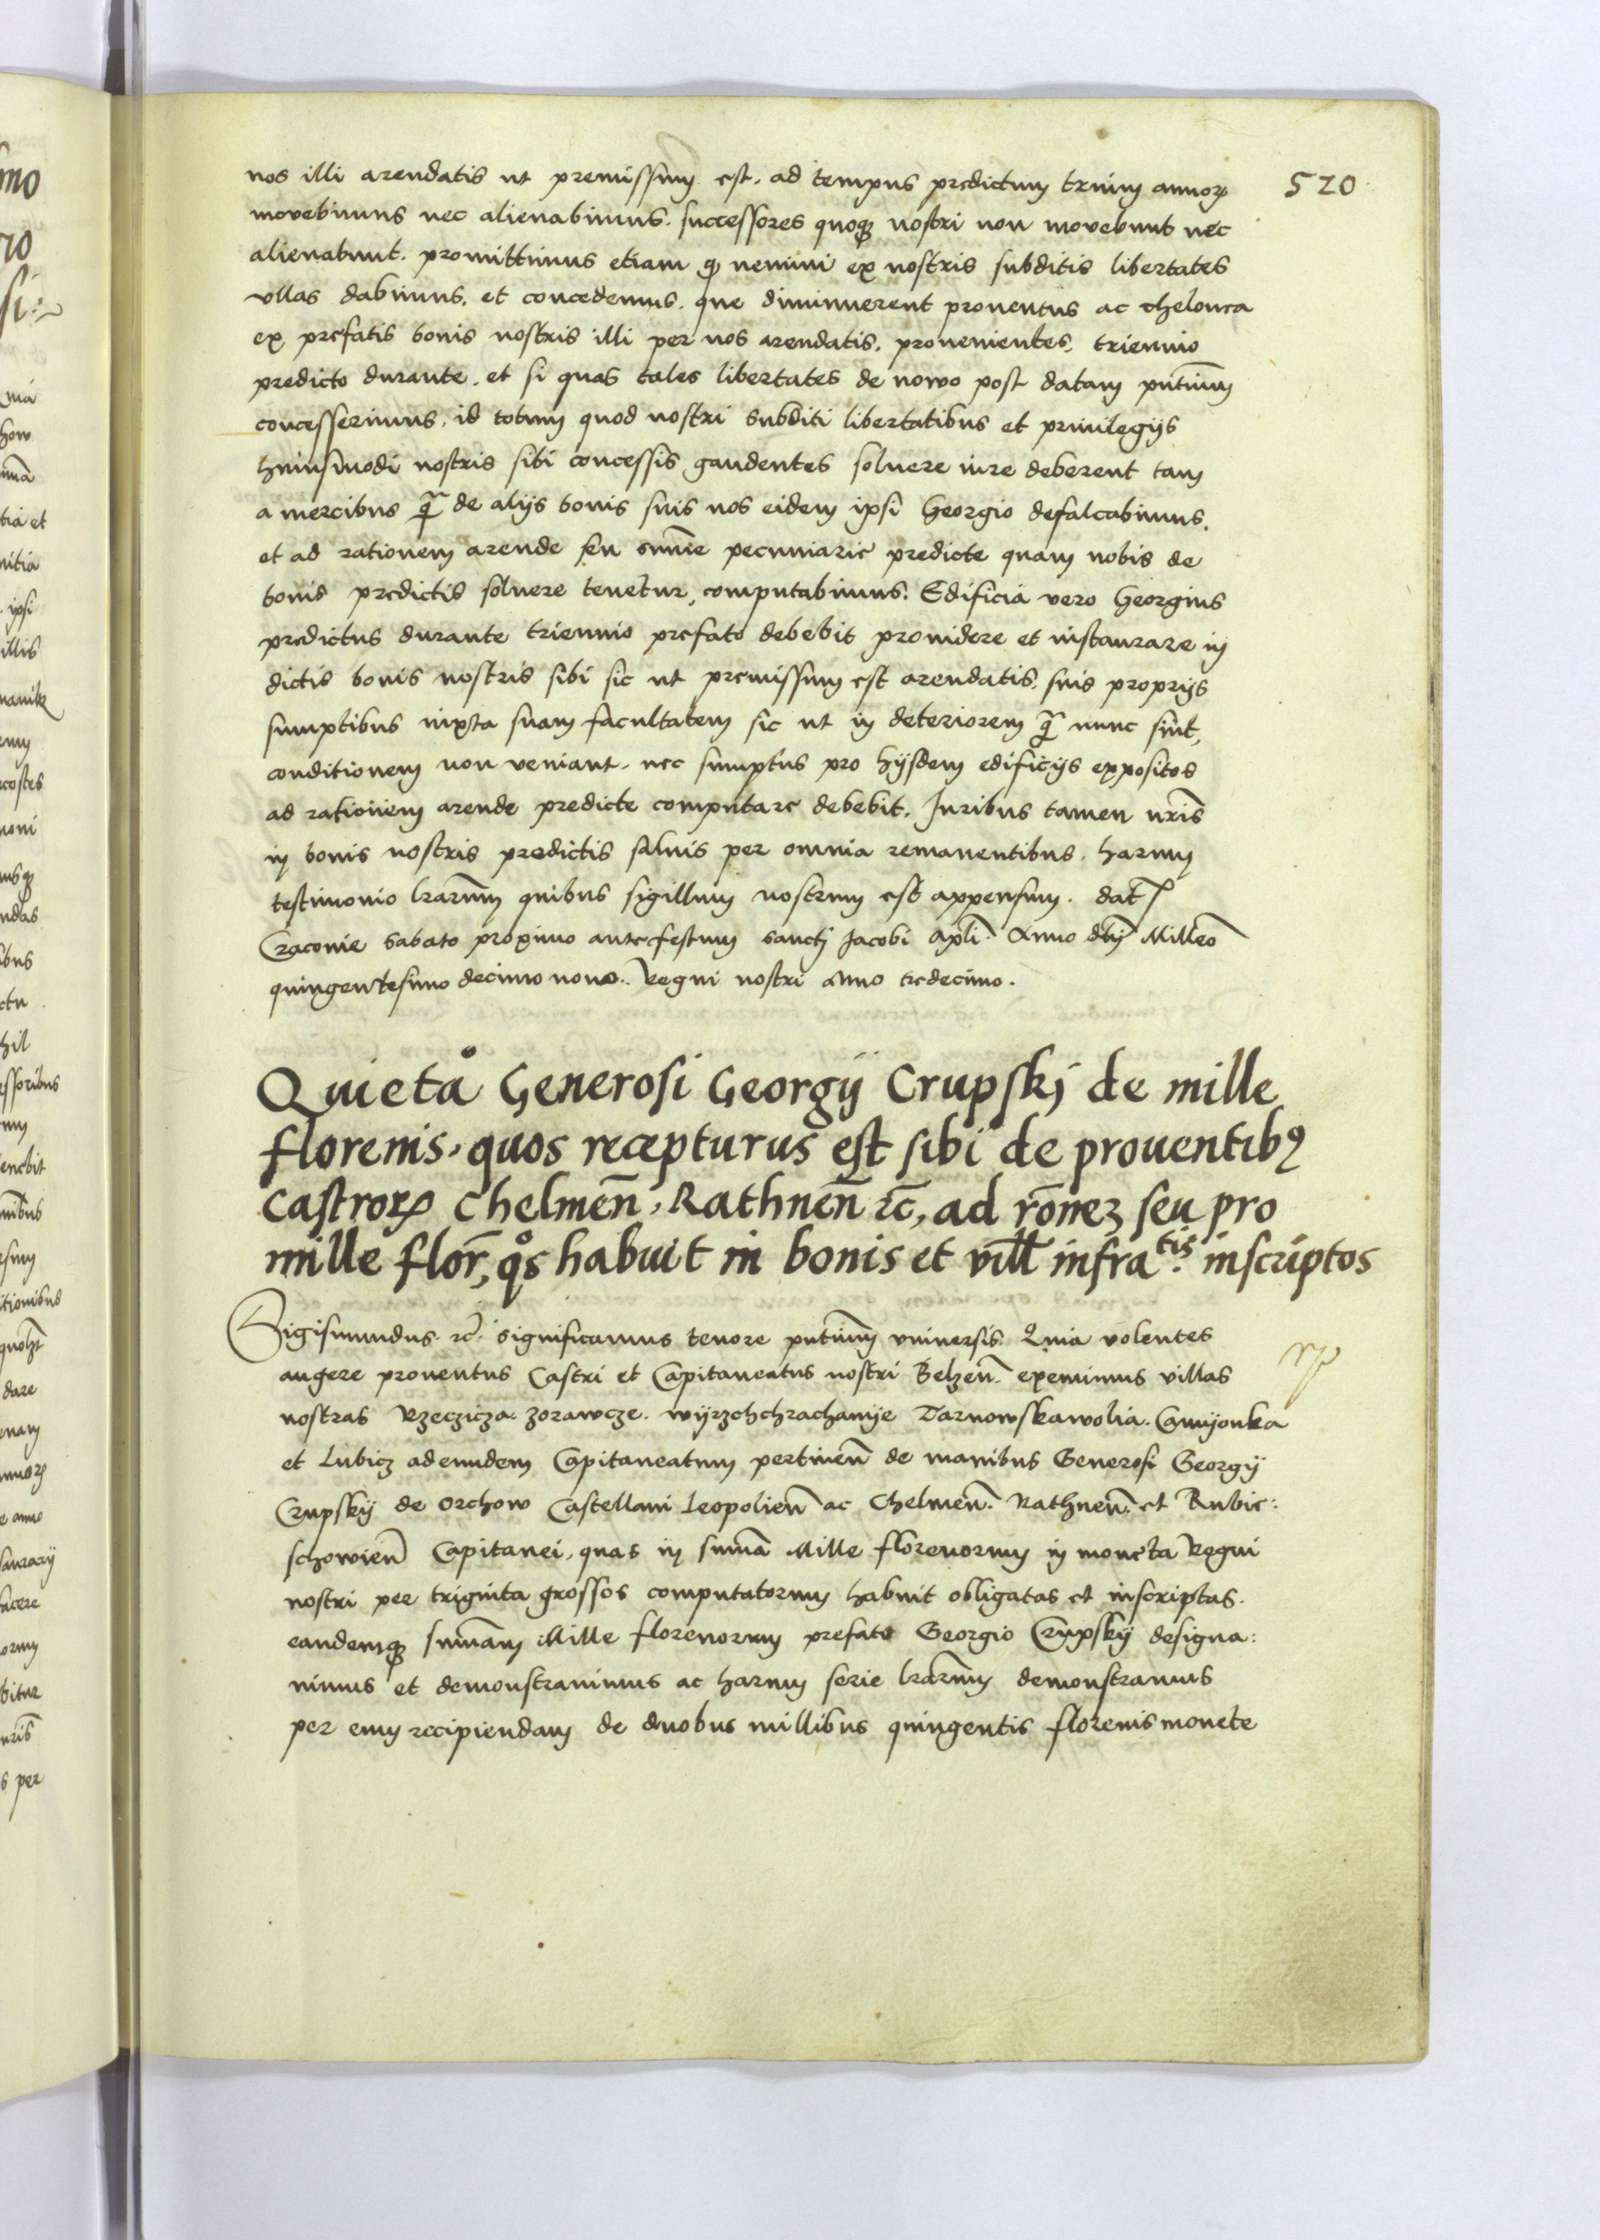 520
nos illi arendatis ut premissum est, ad tempus predictum trium annoꝝ
movebimus nec alienabimus. successores quoqꝫ nostri non movebunt nec
alienabunt. promittimus etiam ꝙ nemini ex nostris subditis libertates
vllas dabimus, et concedemus. que diminuerent proventus ac thelonea
ex prefatis bonis nostris illi per nos arendatis, provenientes, triennio
predicto durante. et si quas tales libertates de nowo post datam pñtium
concesserimus, id totum quod nostri subditi libertatibus et privilegijs
huiusmodi nostris sibi concessis gaudentes solvere iure deberent tam
a mercibus q̃ de alijs bonis suis nos eidem ipsi Georgio defalcabimus,
et ad rationem arende seu sum̃e pecuniarie predicte quam nobis de
bonis predictis solvere tenetur, computabimus. Edificia vero Georgius
predictus durante triennio prefato debebit providere et instaurare in
dictis bonis nostris sibi sic ut premissum est arendatis, suis proprijs
sumptibus iuxta suam facultatem sic ut in deteriorem q̃ nunc sint,
conditionem non veniant. nec sumptus pro hijsdem edificijs expositos
ad rationem arende predicte computare debebit. Iuribus tamen nr̃is
in bonis nostris predictis salvis per omnia remanentibus. harum
testimonio lrarum̃ quibus sigillum nostrum est appensum. dat̃
Cracovie sabato proximo ante festum sancti Jacobi apli. Anno dñi Milleo
quingentesimo decimo nono. Regni nostri Anno tredecimo.
Quietaͦ Generosi Georgij Crupskj de mille
florenis, quos recepturus est sibi de proventibꝰ
Castroꝝ Chelmeñ, Rathneñ ⁊c̃, ad rõnez seu pro
mille flor̃, qͦs habuit in bonis et vill infraᵗⁱˢ. inscriptos
Sigismundus ⁊c̃. significamus tenore pñtium vniversis. Quia volentes
augere proventus Castri et Capitaneatus nostri Belzeñ. exemimus villas
nostras Rzeczicza zorawcze. wijrzchchrachamije Tarnowskawolia. Camijonka
et Lubicz ad eundem Capitaneatum pertineñ de manibus Generosi Georgij
Crupskij de Orchow Castellani Leopolieñ ac Chelmeñ. Rathneñ. et Rubie:
schowieñ Capitanei, quas in sum̃a Mille florenorum in moneta Regni
nostri per triginta grossos computatorum habuit obligatas et inscriptas.
eandemqꝫ sum̃am Mille florenorum prefato Georgio Crupskij designa:
vimus et demonstravimus ac harum serie lrarum̃ demonstramus
per eum recipiendam de duobus millibus quingentis florenis monete